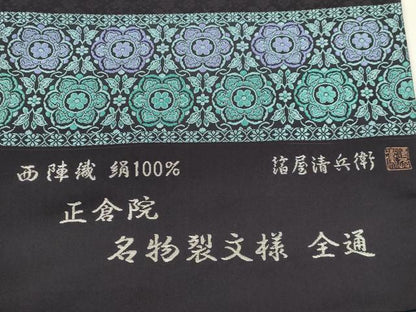 西陣織 絹100% 箔屋清兵衛
正倉院
名物裂文様 全通